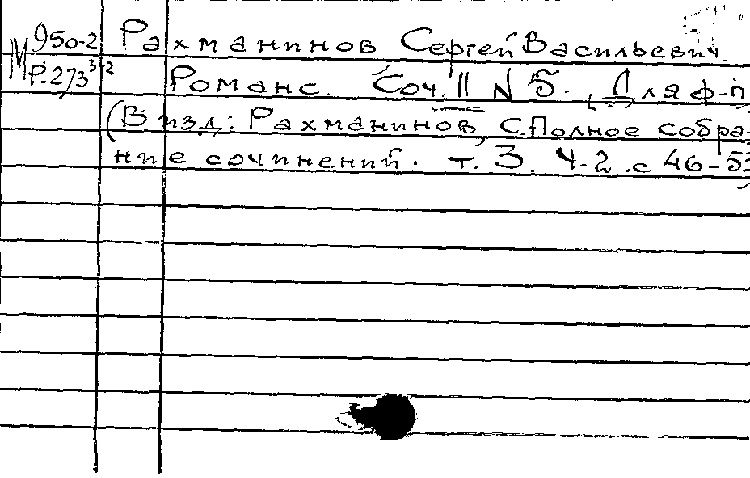 М 950-2 Рахманинов Сергей Васильевич
Р-273 3/2 Романс. Соч. II N 5. Для ф-п
(В изд: Рахманинов, С. Полное собра-
ние сочинений. т. 3. Ч-2 с 46-53